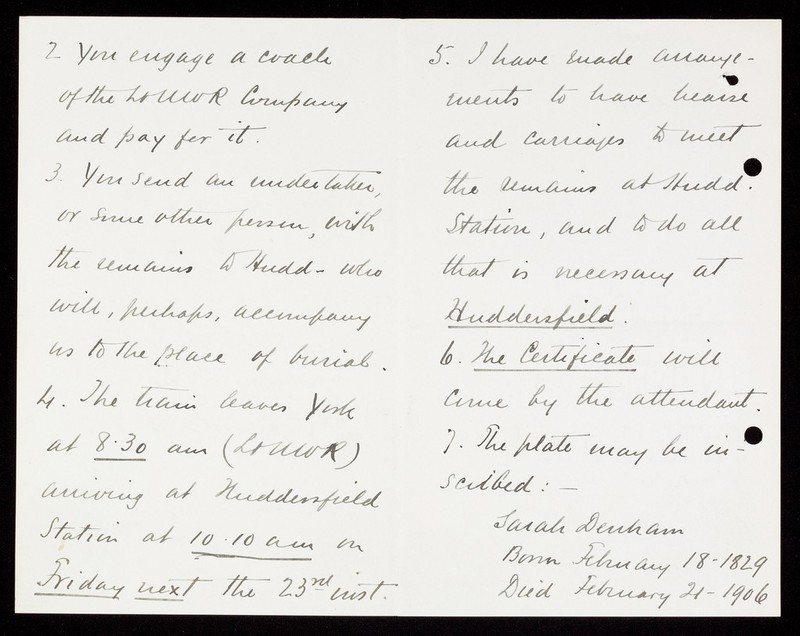 2 You engage a coach
of the L&NWR Company
and pay for it.
3. You send an undertaker,
or some other person, with
the remains to Hudd- who
will, perhaps, accompany
us to the place of burial.
4. The train leaves York
at 8.30 am (L&NWR)
arriving at Huddersfield
Station at 10.10 am on
Friday next the 23rd inst.
5. I have made arrange-
ments to have hearse
and carriages to meet
the remains at Hudd.
Station, and to do all
that is necessary at
Huddersfield.
6. The Certificate will
come by the attendant.
7. The plate may be in-
scribed: -
Sarah Denham
Born February 18-1829
Died February 21-1906